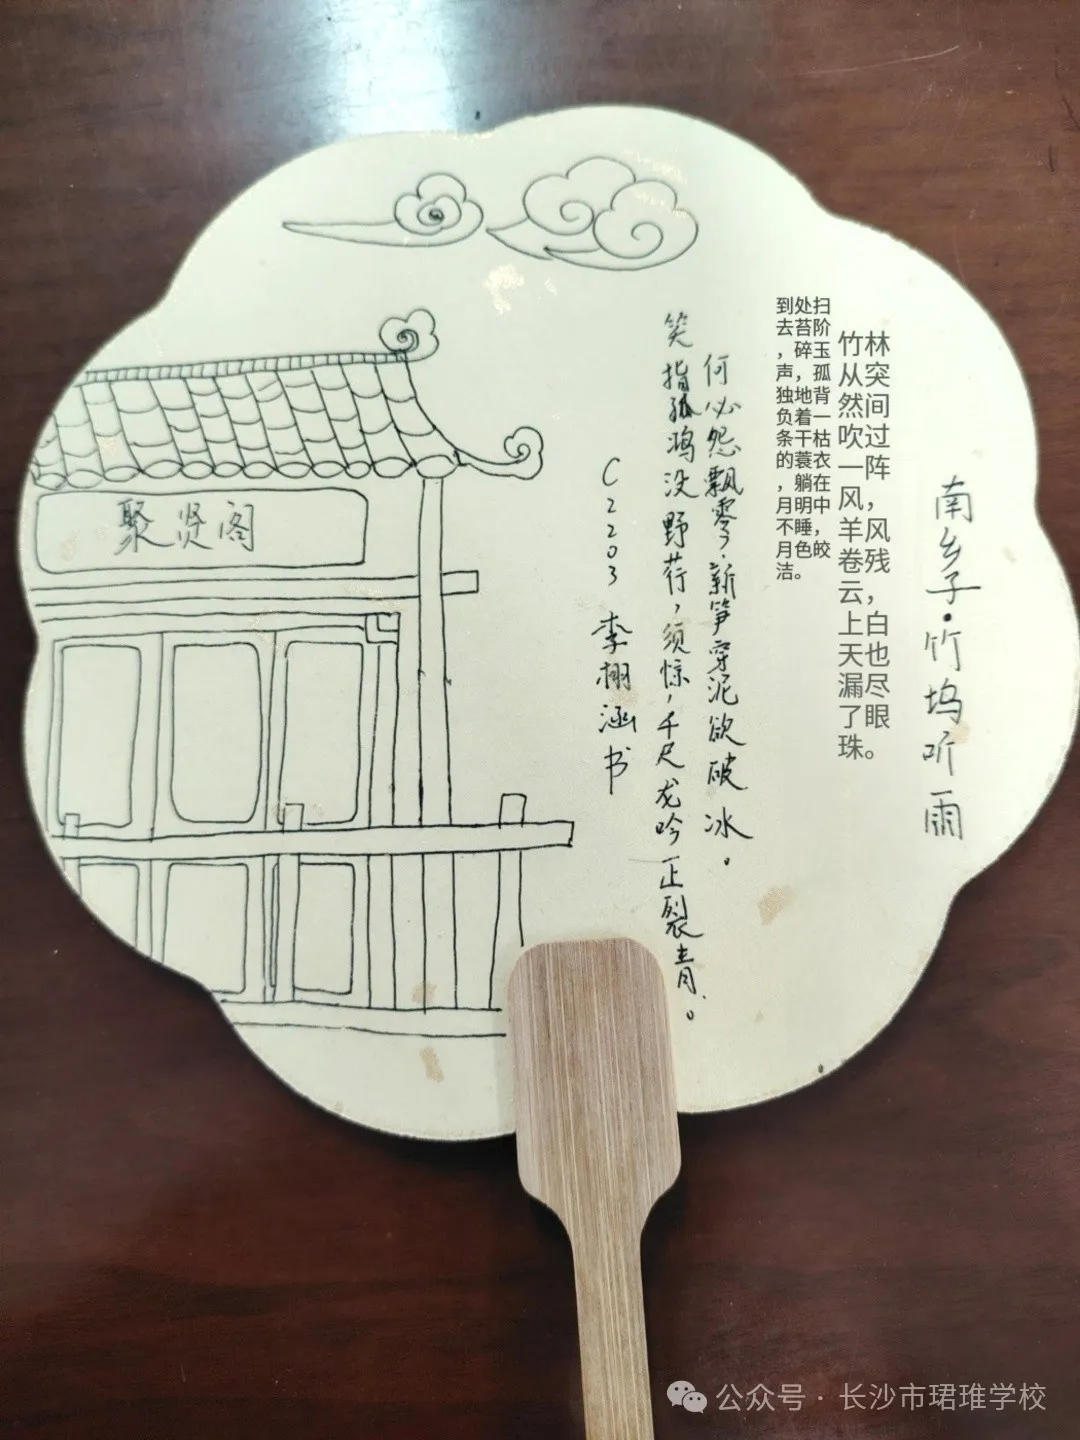 南乡子·竹坞听雨
竹林
从突
然间
吹过
一阵
风，
羊风
卷残
云，
上白
天也
漏尽
了眼
珠。
到处扫
去苔阶
，碎玉
声，孤
独地背
负着一
条干枯
的蓑衣
，躺在
月明中
不睡，
月色皎
洁。
何必怨飘零，新笋穿泥欲破冰。
笑指孤鸿没野荇，须惊，千尺龙吟正裂青。
C2203 李栩涵书
聚贤阁
公众号·长沙市珺琟学校